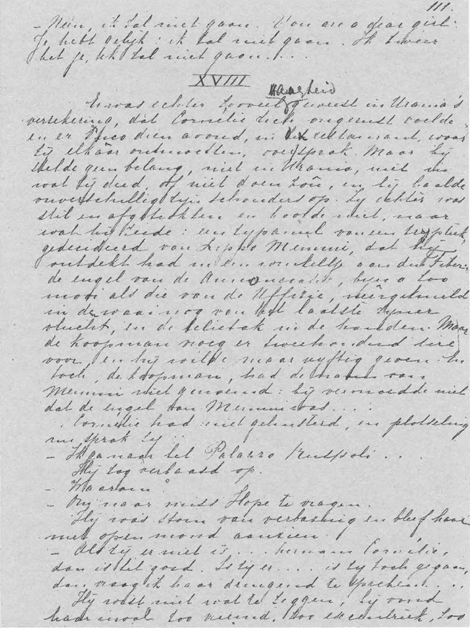 111.
– Neen, ik zal niet gaan. You are a dear girl.
Je hebt gelijk: ik zal niet gaan. Ik zweer
het je, ik zal niet gaan!...
XVIII
Er was echter zooveel vaagheid geweest in Urania's
verzekering, dat Cornelie zich ongerust voelde
en er Duco dien avond, in de restaurant, waar
zij elkaâr ontmoetten, over sprak. Maar hij
stelde geen belang, niet in Urania, niet in
wat zij deed, of niet doen zoû, en hij haalde
onverschillig zijn schouders op. Zij echter was
stil en afgetrokken en hoorde niet, naar
wat hij zeide: een zijpaneel van een triptiek,
gedecideerd van Lippo Memmi, dat hij
ontdekt had in een winkeltje aan den Tiber:
de engel van de Annunciatie, bijna zoo
mooi als die van de Uffizie, neêrgeknield
in de waai nog van het laatste zijner
vlucht, en de lelietak in de handen. Maar
de koopman vroeg er tweehonderd lire
voor, en hij wilde maar vijftig geven. En
toch, de koopman, had de naam van
Memmi niet genoemd: hij vermoedde niet
dat de engel van Memmi was....
Cornelie had niet geluisterd, en plotseling
nu, sprak zij:
– Ik ga naar het Palazzo Ruspoli...
Hij zag verbaasd op.
– Waarom?
– Om naar miss Hope te vragen.
Hij was stom van verbazing en bleef haar
met open mond aanzien.
– Als zij er niet is.... hernam Cornélie,
dan is het goed. Is zij er.... is zij toch gegaan,
dan vraag ik haar dringend te spreken....
Hij wist niet wat te zeggen, hij vond
haar inval zoo vreemd, zoo excentriek, zoo